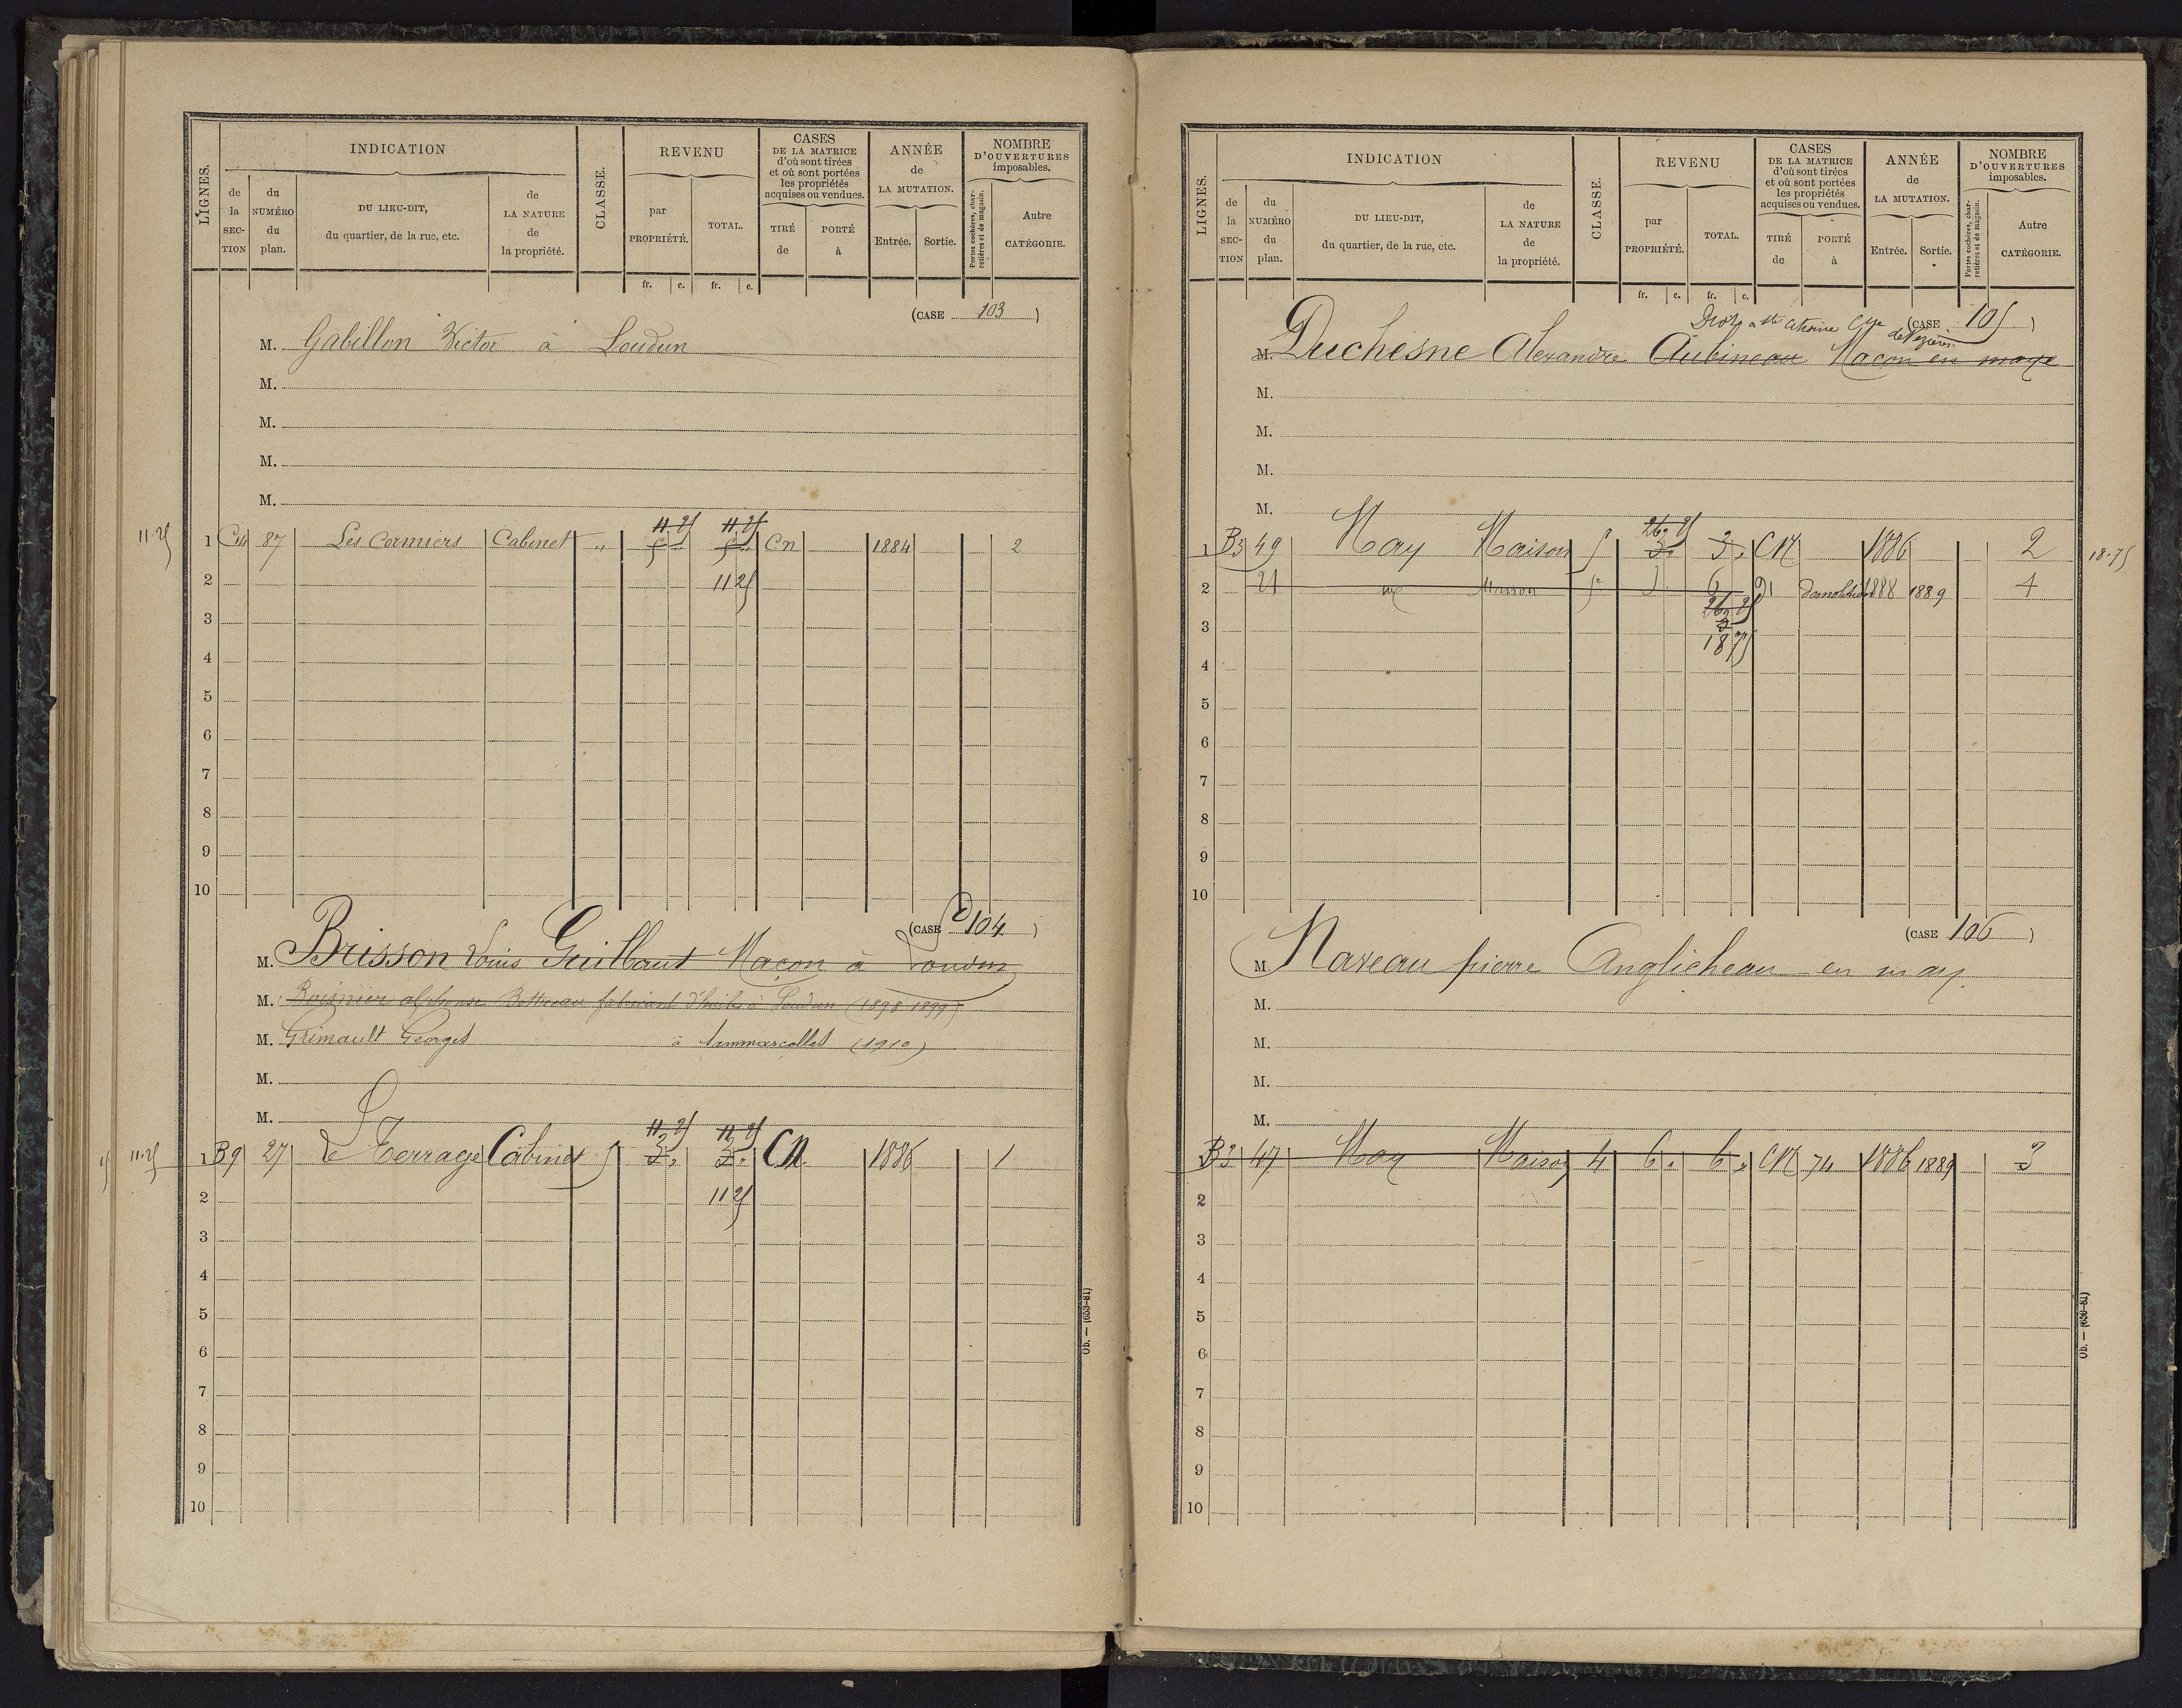 LIGNES.
INDICATION
de la SECTION
du NUMÉRO du plan.
DU LIEU-DIT, du quartier, de la rue, etc.
de LA NATURE de la propriété.
CLASSE.
REVENU
par PROPRIÉTÉ.
TOTAL.
fr. c. fr. c.
CASES DE LA MATRICE d'où sont tirées et où sont portées les propriétés acquises ou vendues.
TIRÉ de
PORTÉ à
ANNÉE de LA MUTATION.
Entrée. Sortie.
NOMBRE D'OUVERTURES imposables.
Portes cochères, charretières et de magasin.
Autre CATÉGORIE.
(CASE 103)
M. Gabillon Victor à Loudun
M.
M.
M.
M.
11.25 1 C14 87 Les Cormiers Cabinet " 11.25 5 " 11.25 5 " Cn 1884 2
2 11 25
3
4
5
6
7
8
9
10
(CASE 104)
M. Brisson Louis Guilbaut Maçon à Loudun
M. alphonse fabricant d'huile à Loudun (1898-1899)
M. Grimault Georges à Sammarcolles (1910)
M.
M.
11.25 1 B9 27 Le Terrage Cabinet 5 11.25 3 " 11.25 3 " CN. 1886 1
2 11 25
3
4
5
6
7
8
9
10
Ob. — (653-81)
LIGNES.
INDICATION
de la SECTION
du NUMÉRO du plan.
DU LIEU-DIT, du quartier, de la rue, etc.
de LA NATURE de la propriété.
CLASSE.
REVENU
par PROPRIÉTÉ.
TOTAL.
fr. c. fr. c.
CASES DE LA MATRICE d'où sont tirées et où sont portées les propriétés acquises ou vendues.
TIRÉ de
PORTÉ à
ANNÉE de LA MUTATION.
Entrée. Sortie.
NOMBRE D'OUVERTURES imposables.
Portes cochères, charretières et de magasin.
Autre CATÉGORIE.
(CASE 105)
de Vezières
M. Duchesne Alexandre Aubineau Macon en maye
M.
M.
M.
M.
1 B3 49 May Maison 5 26.25 3 " 3 " CN 1886 2 18.75
2 21 Maison 5e 91 démolition 1888 1889 4
26 25
3
3 18 75
4
5
6
7
8
9
10
(CASE 106)
M. Naveau pierre Anglicheau en may
M.
M.
M.
M.
1 B3 47 May Maison 4 6 " 6 " CN 74 1886 1889 3
2
3
4
5
6
7
8
9
10
Ob. — (656-81)